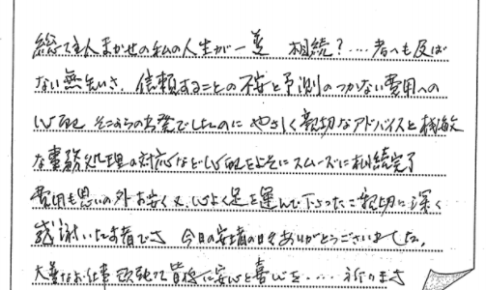 総て主人まかせの私の人生が一変 相続?....考へも及ば
ない無知さ、信頼することの不安と予測のつかない費用への
心配 そこからの出発でしたのに やさしく親切なアドバイスと機敏
な事務処理の対応など心配をよそにスムーズに相続完了
費用も思いの外お安く又、心よく足を運んで下さったご親切に深く
感謝いたす者です 今日の安堵の日々ありがとうございました。
大変なお仕事 頑張って皆様に安心と喜びを....祈ります